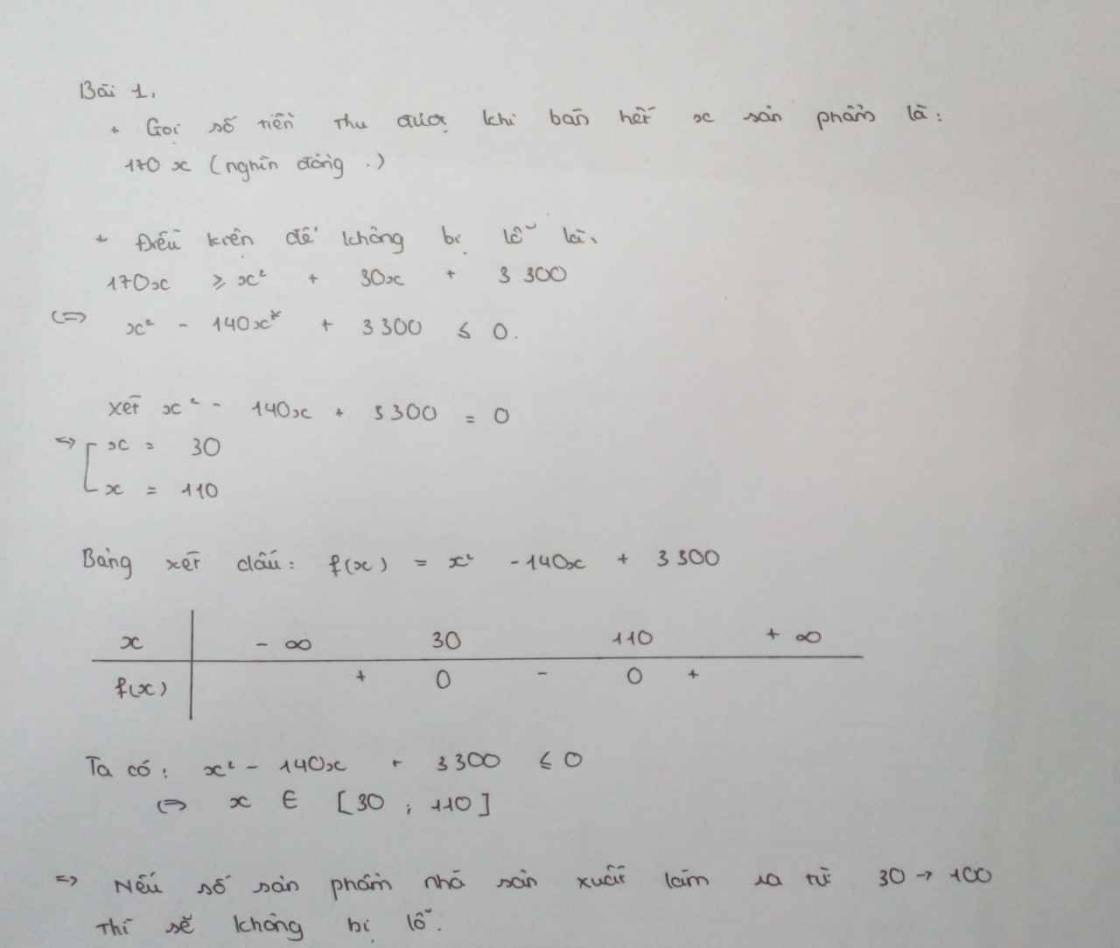 Bài 1.
+ Gọi số tiền thu được khi bán hết x sản phẩm là:
170 x (nghìn đồng.)
+ Điều kiện để không bị lỗ là.
170x ≥ x² + 30x + 3 300
<=> x² - 140x + 3 300 ≤ 0.
xét x² - 140x + 3 300 = 0
=> [ x = 30
x = 110
Bảng xét dấu: f(x) = x² - 140x + 3 300
x - ∞ 30 110 + ∞
f(x) + 0 - 0 +
Ta có: x² - 140x + 3 300 ≤ 0
<=> x ∈ [30 ; 110]
=> Nếu số sản phẩm nhà sản xuất làm ra từ 30 → 100
thì sẽ không bị lỗ.